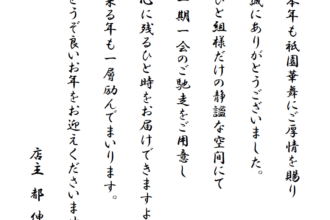 本年も祇園華舞にご厚情を賜り
誠にありがとうございました。
ひと組様だけの静謐な空間にて
一期一会のご馳走をご用意し
心に残るひと時をお届けできますよ
来る年も一層励んでまいります。
どうぞ良いお年をお迎えくださいませ
店主 都 伸